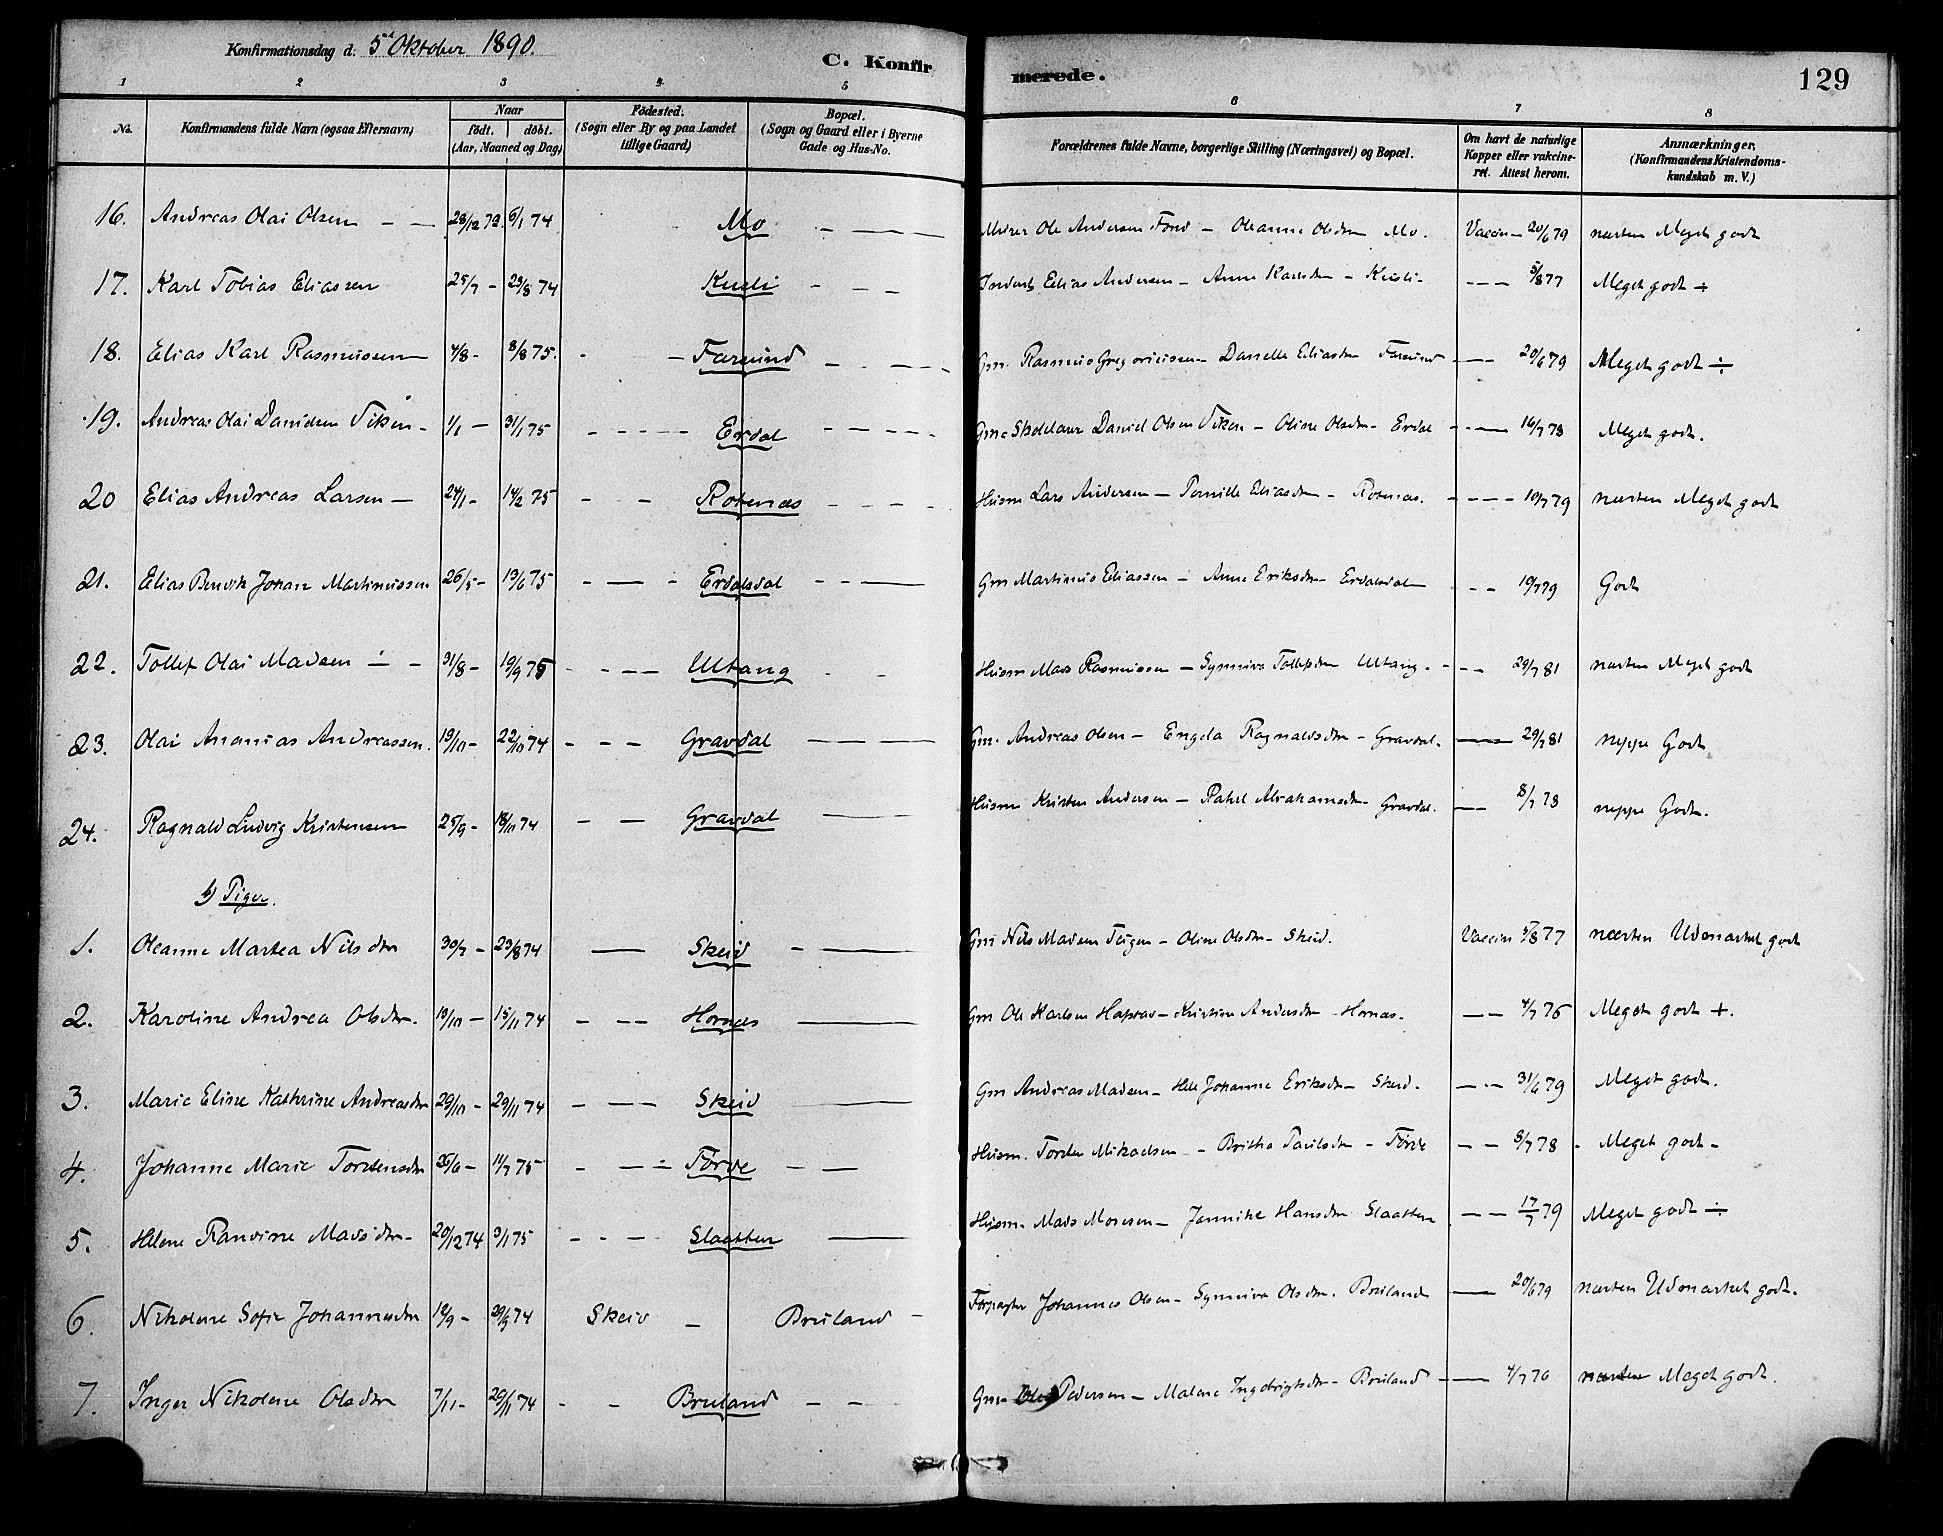 Konfirmationsdag d. 5te Oktober 1890.
C. Konfirmerede.
129
1 2 3 4 5 6 7 8
No. Konfirmandens fulde Navn (ogsaa Efternavn) Naar født. døbt. (Aar, Maaned og Dag) Fødested. (Sogn eller By og paa Landet tillige Gaard) Bopæl. (Sogn og Gaard eller i Byerne Gade og Hus-No. Forældrenes fulde Navne, borgerlige Stilling (Næringsvei) og Bopæl. Om havt de naturlige Kopper eller vakcineret. Attest herom. Anmærkninger. (Konfirmandens Kristendomskundskab m. V.)
16. Andreas Olai Olsen – – 28/12 73. 6/1 74 Mo – — Ole Andersen – Oleanne Olsdtr Mo. Vaccin – 20/6 79 næsten Meget godt
17. Karl Tobias Eliassen 25/7 – 23/8 74 Kusli – – – Inderst Elias Andersen – Anne Karlsdtr – Kusli – – – – 5/8 77 Meget godt ÷
18. Elias Karl Rasmussen 4/8 – 8/8 75. – – Farsund – – – Gm. Rasmus Gregoriussen – Danielle Eliasdtr Farsund – – 20/6 79 Meget godt ÷
19. Andreas Olai Danielsen Viken – 1/1 – 31/1 75 – – – – Erdal – – – – Gm. Skolelærer Daniel Olsen Viken – Oline Olsdtr – Erdal – – 16/7 78 Meget godt.
20 Elias Andreas Larsen – 24/1 – 14/2 75 – – Rotenæs – – – – Husm Lars Andersen – Pernille Eliasdtr – Rotenæs. – – – – 10/7 79 næsten Meget godt
21. Elias Benvik Johan Martinussen 26/5 – 13/6 75 – – – Erdalsdal – – — Gm Martinus Eliassen – Anne Eriksdtr – Erdalsdal – – – 10/7 79 Godt
22. Tollef Olai Madsen ÷ – 31/8 – 19/9 75 – – – – Ultang – – Husm Mads Rasmussen – Synneva Tollefsdtr Ultang. – – – 29/7 81 næsten Meget godt
23. Olai Ananias Andreassen. 19/10 – 22/10 74 – – – Gravdal – — – Gm. Andreas Olsen – Engela Ragnaldsdtr – Gravdal. — 29/7 81 neppe Godt
24. Ragnald Ludvig Kristensen 25/9 – 18/11 74 – – Gravdal — Husm Kristen Andersen – Rakel Abrahamsdtr – Gravdal. – – 8/7 78 neppe Godt.
b) Piger.
1. Oleanne Martea Nilsdtr 30/7 – 23/8 74 — Skeid – — Gm Nils Madsen Teigen – Oline Olsdtr – Skeid. Vaccin 5/8 77 næsten Udmærket godt
2. Karoline Andrea Olsdtr. 19/10 – 15/11 74 – – – Hornæs — Gm Ole Karlsen – Kristine Andersdtr – Hornæs – – – 4/7 76 Meget godt +.
3. Marie Eline Kathrine Andreasdtr 29/10 – 29/11 74 – – – Skeid — Gm Andreas Madsen – Johanne Eriksdtr – Skeid. – – 31/6 79 Meget godt.
4. Johanne Marie Torstensdtr 26/6 – 11/7 75 – – – ÷ Førde – – Husm. Torsten Mikaelsen – Britha Paulsdtr – Førde – – 8/7 78 – Meget godt –
5. Helene Ranvine Madsdtr – 20/12 74 3/1 75 – – – – Slaatten — Husm. Mads Monsen – Jannike Hansdtr Slaatten – – 17/7 79 Meget godt ÷
6. Nikolene Sofie Johannesdtr 12/9 – 29/9 74 Skeid – Bruland – Forpagter Johannes Olsen – Synneva Olsdtr. Bruland — 20/6 79 næsten Udmærket godt.
7. Inger Nikolene Olsdtr 7/11 – 29/11 74 – – Bruland – – – Gm – Ole Pedersen – Malene Ingebrigtsdtr – Bruland – — 4/7 76 næsten Meget godt.